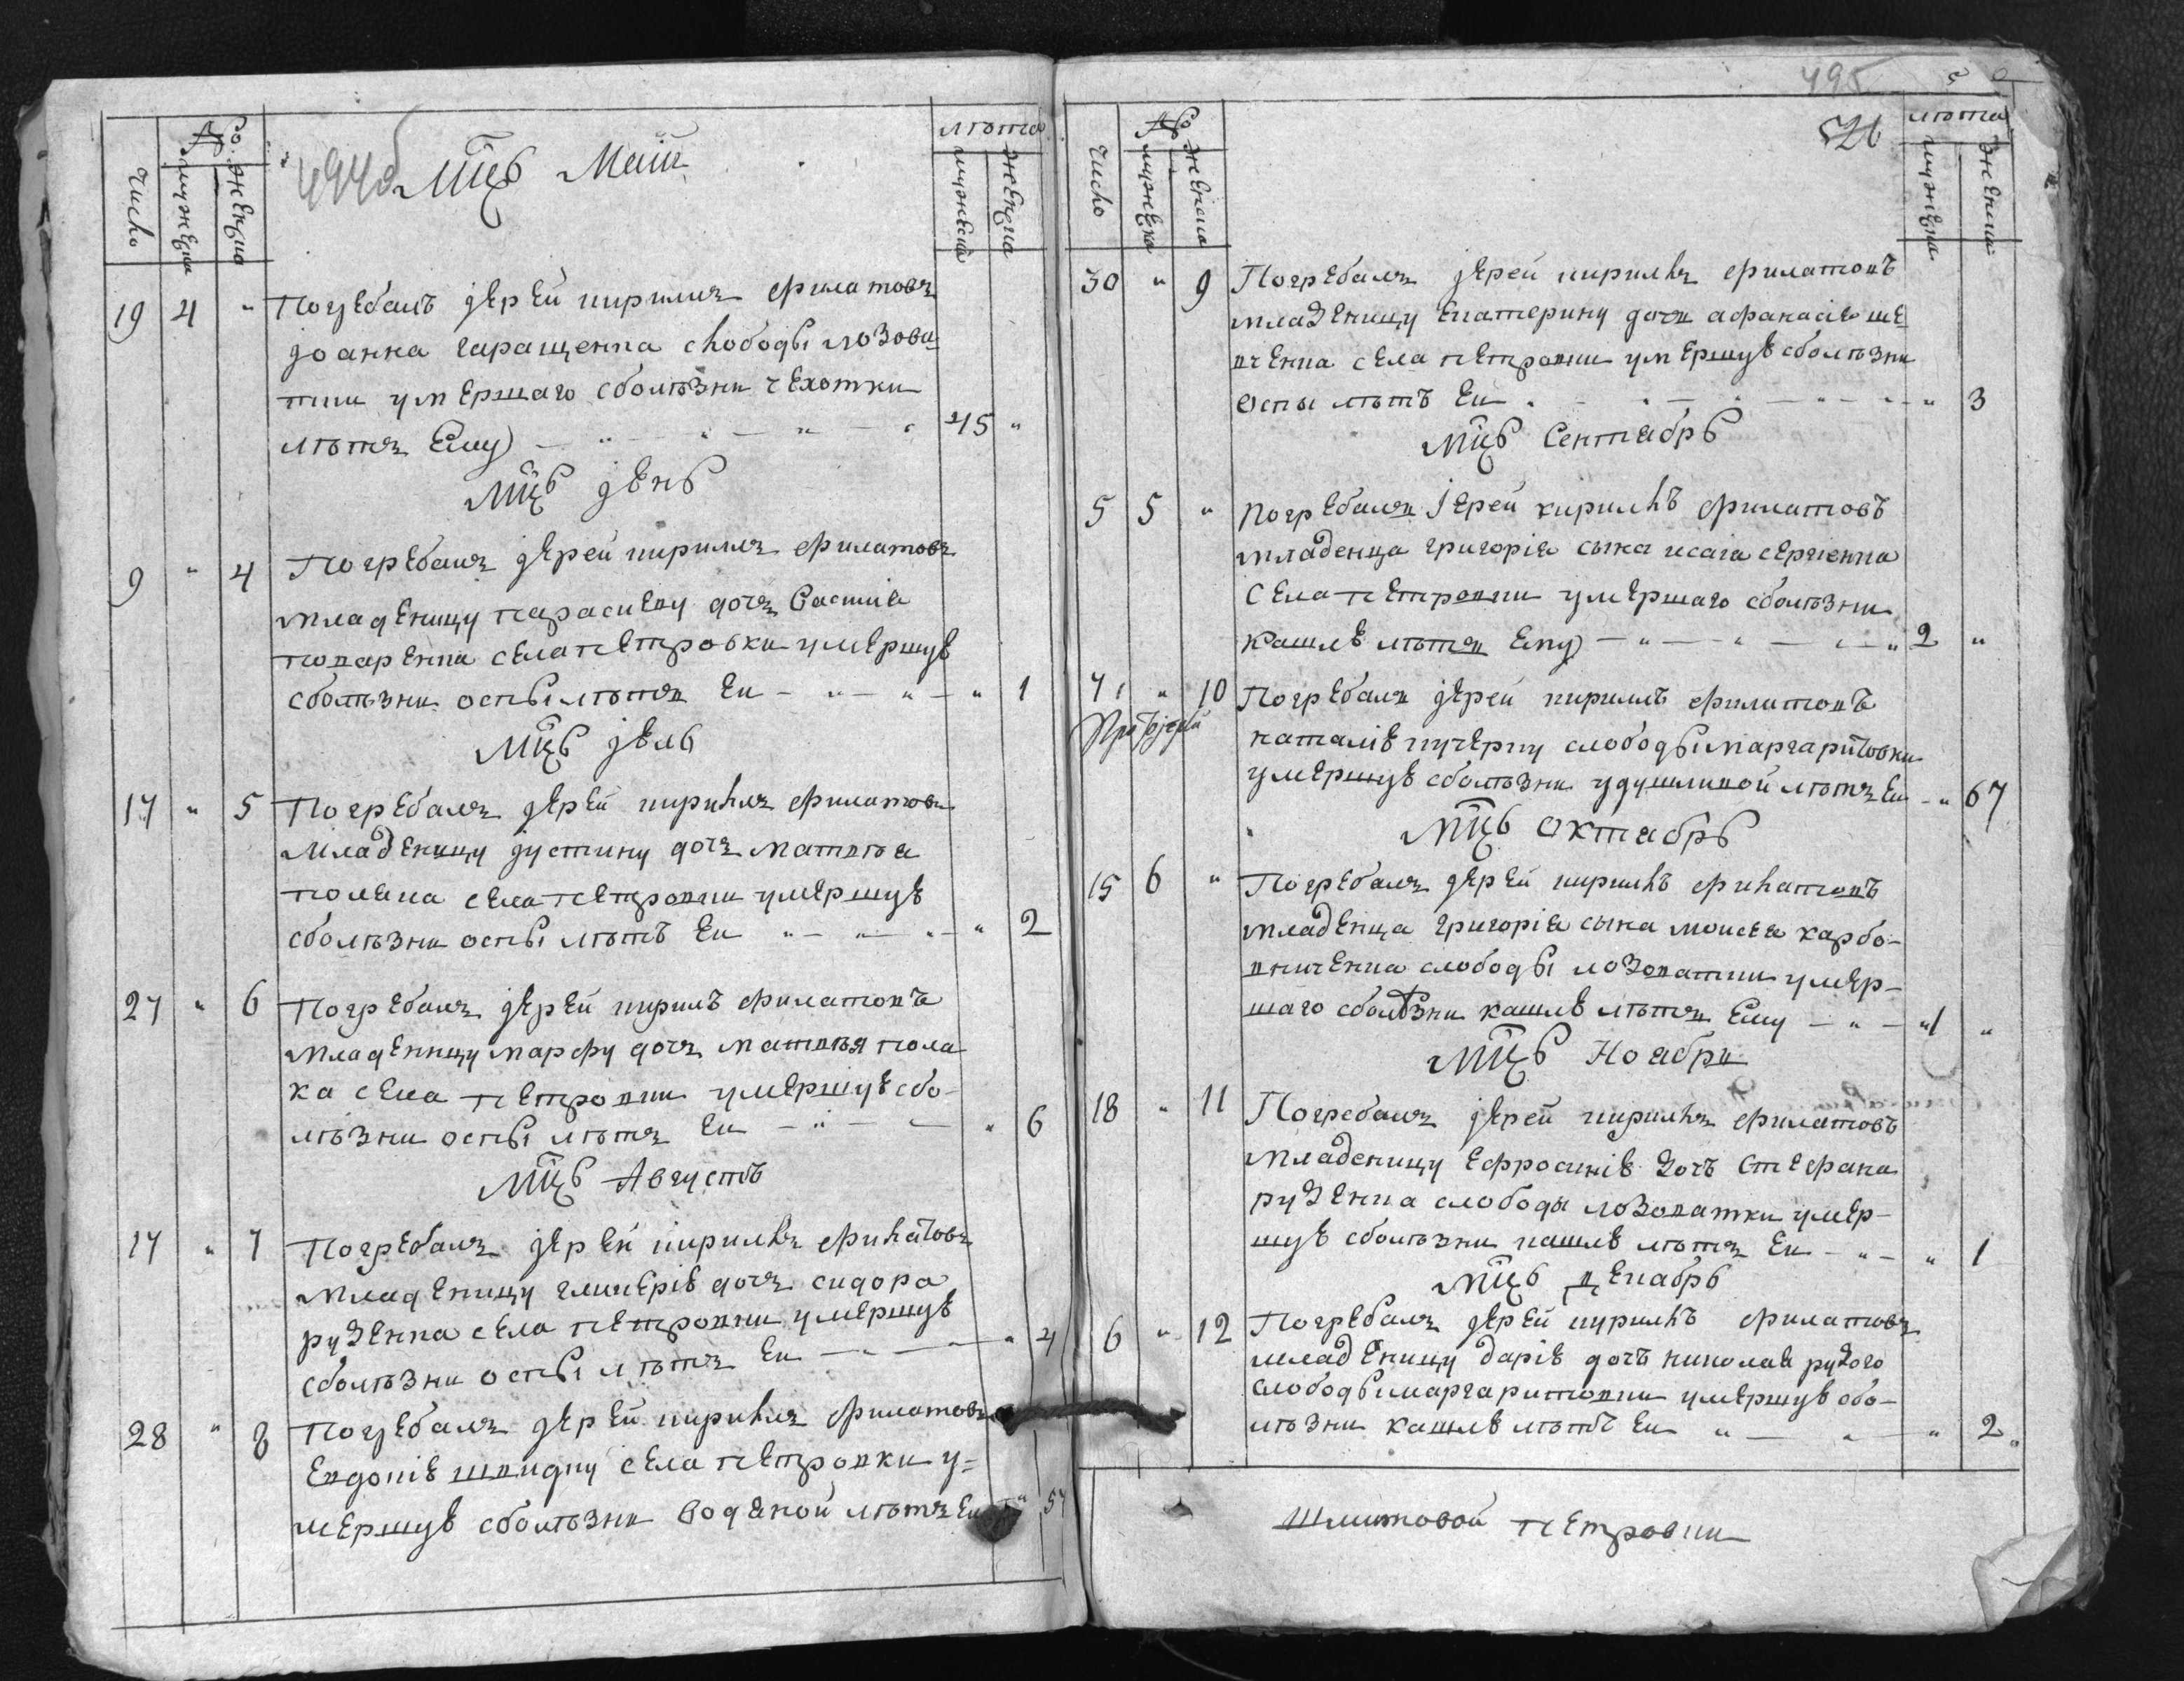 494об
Мц҃ъ Маій
Число
№
мужеска
женска
лѣта
мужеска
женска
19 4 "
Погребалъ іерей кириллъ филатовъ
іоанна гаращенка слободы лозова
тки умершаго сболѣзни чехотки
лѣтъ ему 45 "
Мц҃ъ іюнь
9 " 4
Погребалъ іерей кириллъ филатовъ
младеницу параскеву дочъ василіа
села петровки умершую
сболѣзни оспы лѣтъ еи " 1
Мц҃ъ іюль
17 " 5
Погребалъ іерей кириллъ филатовъ
младеницу іустину дочъ матвѣа
полака села петровки умершую
сболѣзни оспы лѣтъ еи " 2
27 " 6
Погребалъ іерей кирилъ филатовъ
младеницу марфу дочъ матвѣя пола
ка села петровки умершую сбо-
лѣзни оспы лѣтъ еи " 6
Мц҃ъ Августъ
17 " 7
Погребалъ іерей кириллъ филатовъ
младеницу гликерію дочъ сидора
руденка села петровки умершую
сболѣзни оспы лѣтъ еи " 4
28 " 8
Погребалъ іерей кириллъ филатовъ
евдокію швидку села петровки у=
мершую сболѣзни водяной лѣтъ еи " 57
495
Число
№
мужеска
женска
лѣта
мужеска
женска
30 " 9
Погребалъ іерей кириллъ филатовъ
младеницу екатерину дочъ афанасіа ше
вченка села петровки умершую сболѣзни
оспы лѣтъ еи " 3
Мц҃ъ Сентабръ
5 5 "
Погребалъ іерей кириллъ филатовъ
младенца григоріа сына исаіа сергіенка
села петровки умершаго сболѣзни
кашлю лѣтъ ему 2 "
7 " 10
Погребалъ іерей кириллъ филатовъ
наталію кучерку слободы маргаритовки
умершую сболѣзни удушливой лѣтъ еи " 67
Мц҃ъ Октабръ
15 6 "
Погребалъ іерей кириллъ филатовъ
младенца григоріа сына моисеа карбо-
вниченка слободы лозоватки умер-
шаго сболѣзни кашлю лѣтъ ему 1 "
Мц҃ъ Ноабръ
18 " 11
Погребалъ іерей кириллъ филатовъ
младеницу ефросинію дочъ стефана
руденка слободы лозоватки умер-
шую сболѣзни кашлю лѣтъ еи " 1
Мц҃ъ декабръ
6 " 12
Погребалъ іерей кириллъ филатовъ
младеницу дарію дочъ николаа рудого
слободы маргаритовки умершую сбо-
лѣзни кашлю лѣтъ еи " 2
петровки